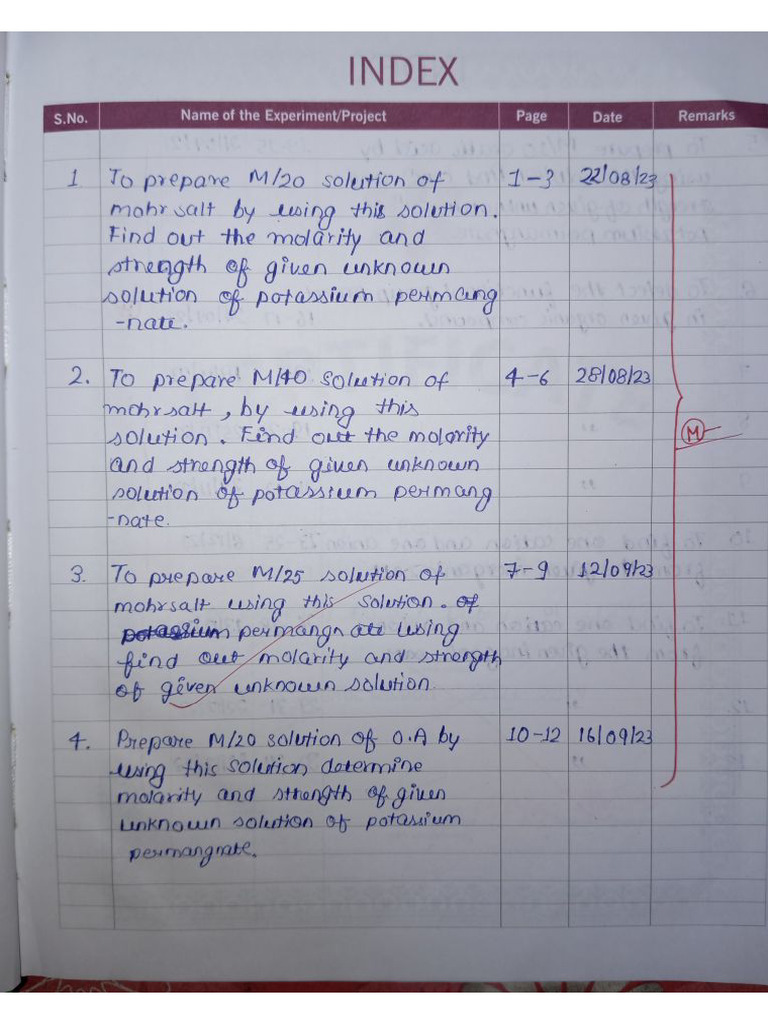 INDEX
S.No. Name of the Experiment/Project Page Date Remarks
1 To prepare M/20 solution of 1-3 22/08/23
mohr salt by using this solution.
Find out the molarity and
strength of given unknown
solution of potassium permang
-nate.
2. To prepare M/40 solution of 4-6 28/08/23
mohrsalt, by using this
solution. Find out the molarity
and strength of given unknown
solution of potassium permang
-nate.
M
3. To prepare M/25 solution of 7-9 12/09/23
mohrsalt using this solution. of
potassium permangnate using
find out molarity and strength
of given unknown solution
4. Prepare M/20 solution of O.A by 10-12 16/09/23
using this solution determine
molarity and strength of given
unknown solution of potassium
permangnate.